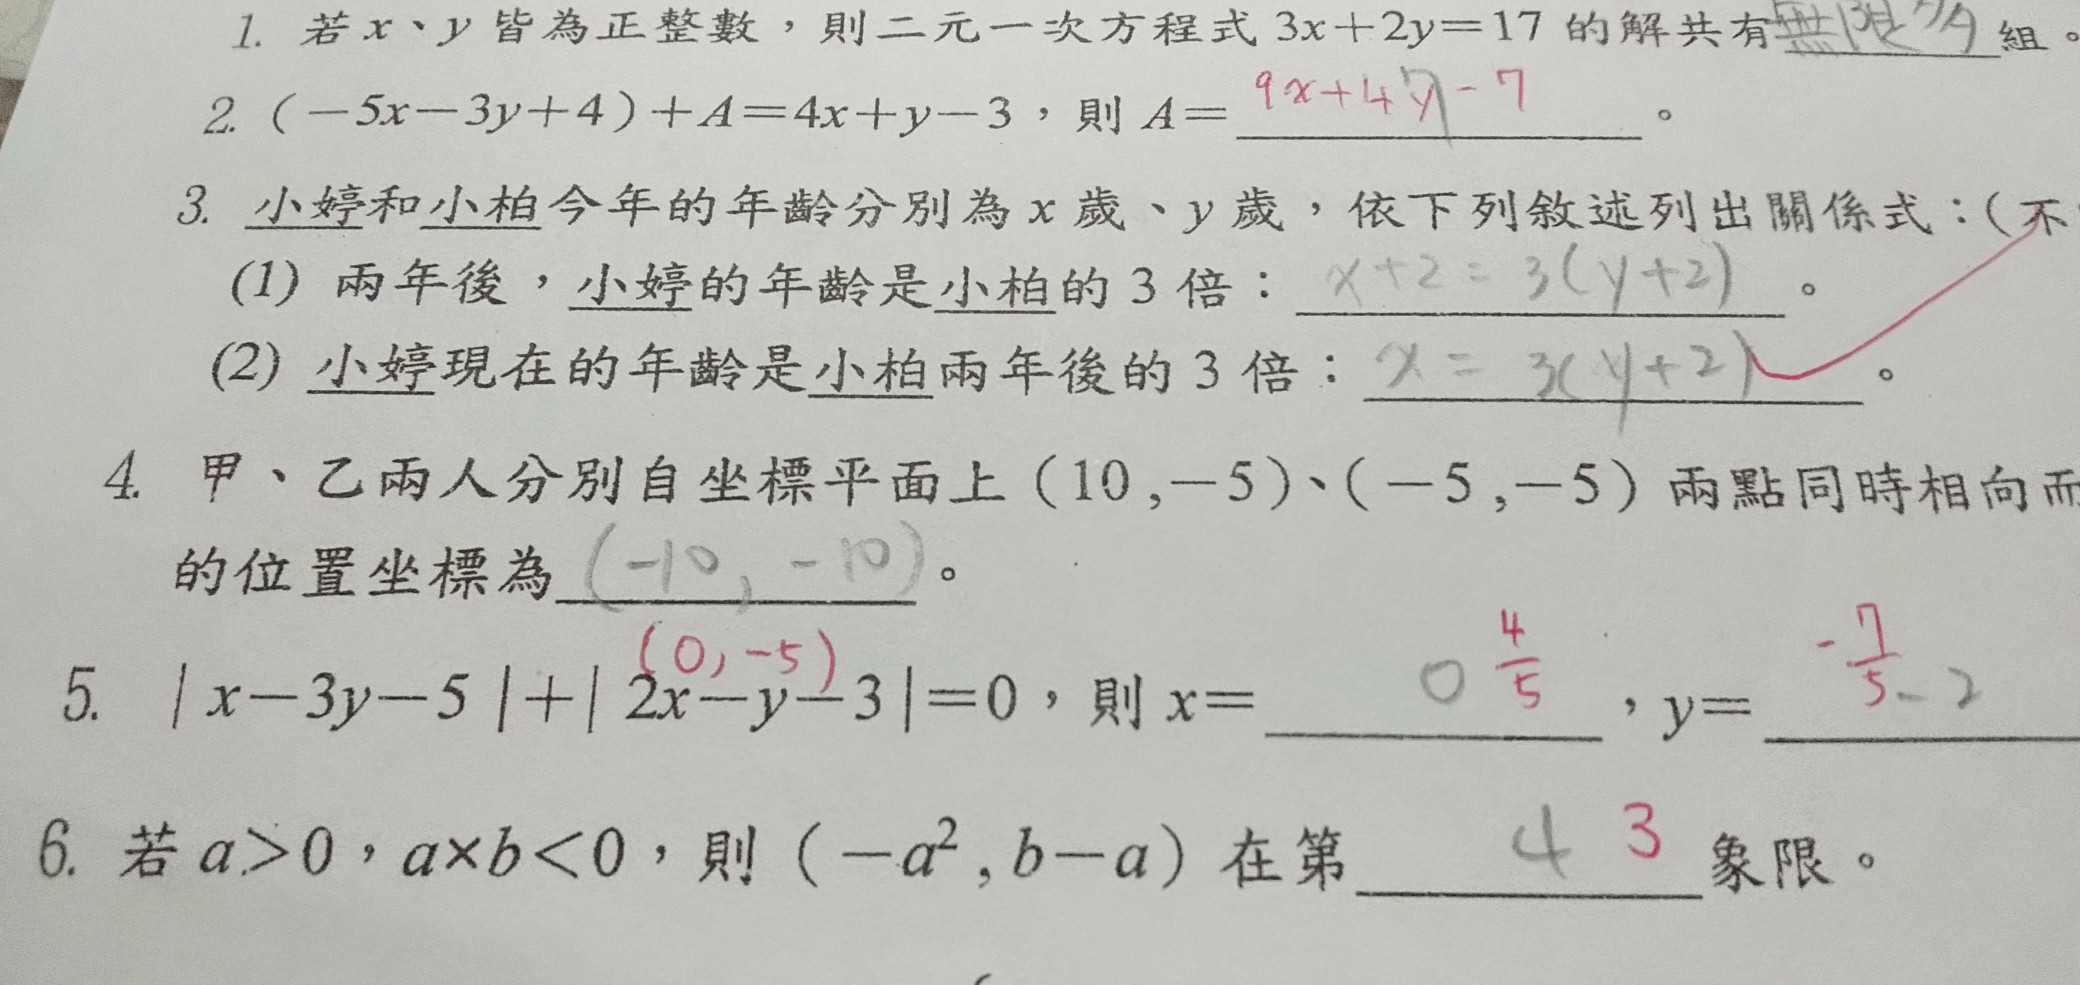 1. 若 x、y 皆為正整數，則二元一次方程式 3x+2y=17 的解共有無限多組。
2. (-5x-3y+4)+A=4x+y-3，則 A=9x+4y-7。
3. 小婷和小柏今年的年齡分別為 x 歲、y 歲，依下列敘述列出關係式：(不
(1) 兩年後，小婷的年齡是小柏的 3 倍：x+2=3(y+2)。
(2) 小婷現在的年齡是小柏兩年後的 3 倍：x=3(y+2)。
4. 甲、乙兩人分別自坐標平面上 (10,-5)、(-5,-5) 兩點同時相向而
的位置坐標為(-10,-10)。
(0,-5)
5. |x-3y-5|+|2x-y-3|=0，則 x=0 4/5，y=-7/5 -2
6. 若 a>0，a×b<0，則 (-a²,b-a) 在第 4 3 象限。